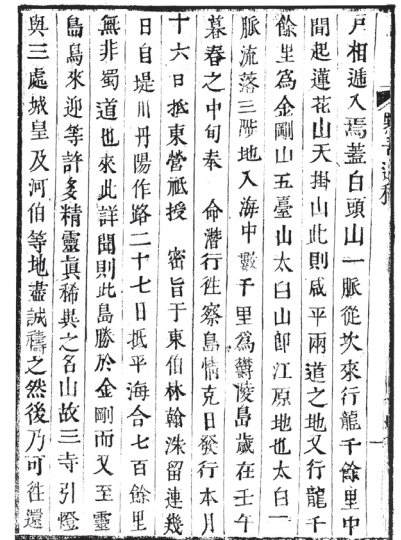 戶相遞入焉蓋白頭山一脈從坎來行龍千餘里中
間起蓮花山天掛山此則咸平兩道之地又行龍千
餘里爲金剛山五臺山太白山卽江原地也太白一
脈流落三陟地入海中數千里爲鬱陵島歲在壬午
暮春之中旬奉 命潛行徃察島情克日發行本月
十六日抵東營祗授 密旨于東伯林翰洙留連幾
日自堤川丹陽作路二十七日抵平海合七百餘里
無非蜀道也來此詳聞則此島勝於金剛而又至靈
島鳥來迎等許多精靈眞稀異之名山故三寺引燈
與三處城皇及河伯等地盡誠禱之然後乃可徃還